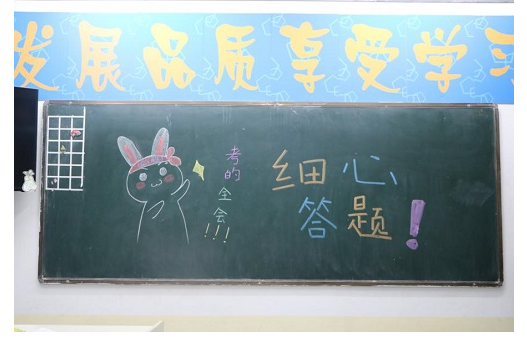 发展品质享受学习
考的全会!!!
细心
答题!